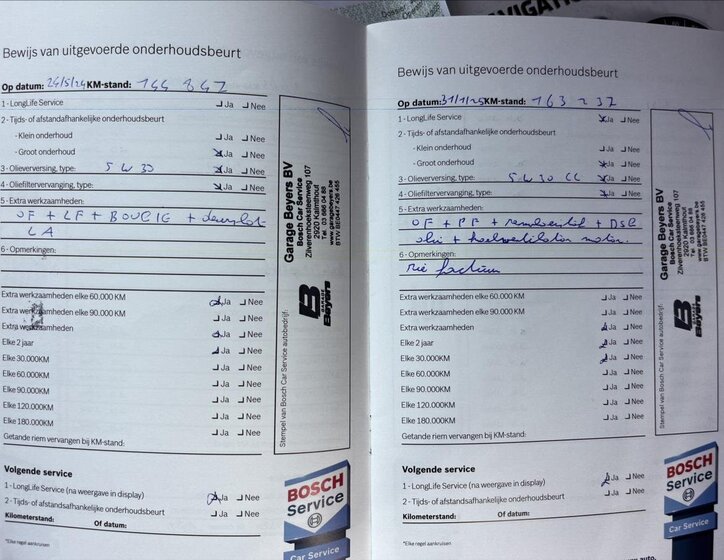 Dossier
NAVIGATION
Bewijs van uitgevoerde onderhoudsbeurt
Op datum: 24/5/24 KM-stand: 144 847
1 - LongLife Service Ja Nee
2 - Tijds- of afstandafhankelijke onderhoudsbeurt
- Klein onderhoud Ja Nee
- Groot onderhoud Ja Nee
3 - Olieverversing, type: 5W30 Ja Nee
4 - Oliefiltervervanging, type: Ja Nee
5 - Extra werkzaamheden:
OF + LF + BOUGIE +
LA
6 - Opmerkingen:
Extra werkzaamheden elke 60.000 KM Ja Nee
Extra werkzaamheden elke 90.000 KM Ja Nee
Extra werkzaamheden Ja Nee
Elke 2 jaar Ja Nee
Elke 30.000KM Ja Nee
Elke 60.000KM Ja Nee
Elke 90.000KM Ja Nee
Elke 120.000KM Ja Nee
Elke 180.000KM Ja Nee
Getande riem vervangen bij KM-stand:
Volgende service
1 - LongLife Service (na weergave in display) Ja Nee
2 - Tijds- of afstandsafhankelijke onderhoudsbeurt Ja Nee
Kilometerstand: Of datum:
*Elke regel aankruisen
Stempel van Bosch Car Service autobedrijf:
Garage Beyers BV
Bosch Car Service
Zilverenhoeksteenweg 107
2920 Kalmthout
Tel. 03 666 04 88
www.garagebeyers.be
BTW BE0447 426 455
B
GARAGE
Beyers
BOSCH
Service
Car Service
Bewijs van uitgevoerde onderhoudsbeurt
Op datum: 31/1/25 KM-stand: 163 237
1 - LongLife Service Ja Nee
2 - Tijds- of afstandafhankelijke onderhoudsbeurt
- Klein onderhoud Ja Nee
- Groot onderhoud Ja Nee
3 - Olieverversing, type: 5W30 CC Ja Nee
4 - Oliefiltervervanging, type: Ja Nee
5 - Extra werkzaamheden:
OF + PF + remvloeistof + DSG
olie + koelventilator motor.
6 - Opmerkingen:
zie factuur
Extra werkzaamheden elke 60.000 KM Ja Nee
Extra werkzaamheden elke 90.000 KM Ja Nee
Extra werkzaamheden Ja Nee
Elke 2 jaar Ja Nee
Elke 30.000KM Ja Nee
Elke 60.000KM Ja Nee
Elke 90.000KM Ja Nee
Elke 120.000KM Ja Nee
Elke 180.000KM Ja Nee
Getande riem vervangen bij KM-stand:
Volgende service
1 - LongLife Service (na weergave in display) Ja Nee
2 - Tijds- of afstandsafhankelijke onderhoudsbeurt Ja Nee
Kilometerstand: Of datum:
*Elke regel aankruisen
Stempel van Bosch Car Service autobedrijf:
Garage Beyers BV
Bosch Car Service
Zilverenhoeksteenweg 107
2920 Kalmthout
Tel. 03 666 04 88
www.garagebeyers.be
BTW BE0447 426 455
B
GARAGE
Beyers
BOSCH
Service
Car Service
uw auto.